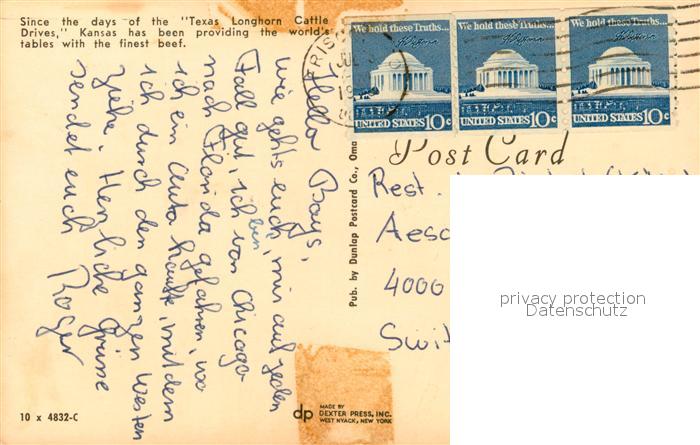 Since the days of the "Texas Longhorn Cattle
Drives," Kansas has been providing the world's
tables with the finest beef.
Hello Boys,
wie gehts euch, mir auf jeden
Fall gut, ich bin von Chicago
nach Florida gefahren, wo
ich ein Auto kaufte, mit dem
ich durch den ganzen Westen
ziehe. Herzliche Grüsse
sendet euch
Roger
10 x 4832-C
Pub. by Dunlap Postcard Co., Oma
dp
MADE BY
DEXTER PRESS, INC.
WEST NYACK, NEW YORK
We hold these Truths...
UNITED STATES 10c
We hold these Truths...
UNITED STATES 10c
We hold these Truths...
UNITED STATES 10c
Post Card
Rest.
Aesc
4000
Swit
privacy protection
Datenschutz